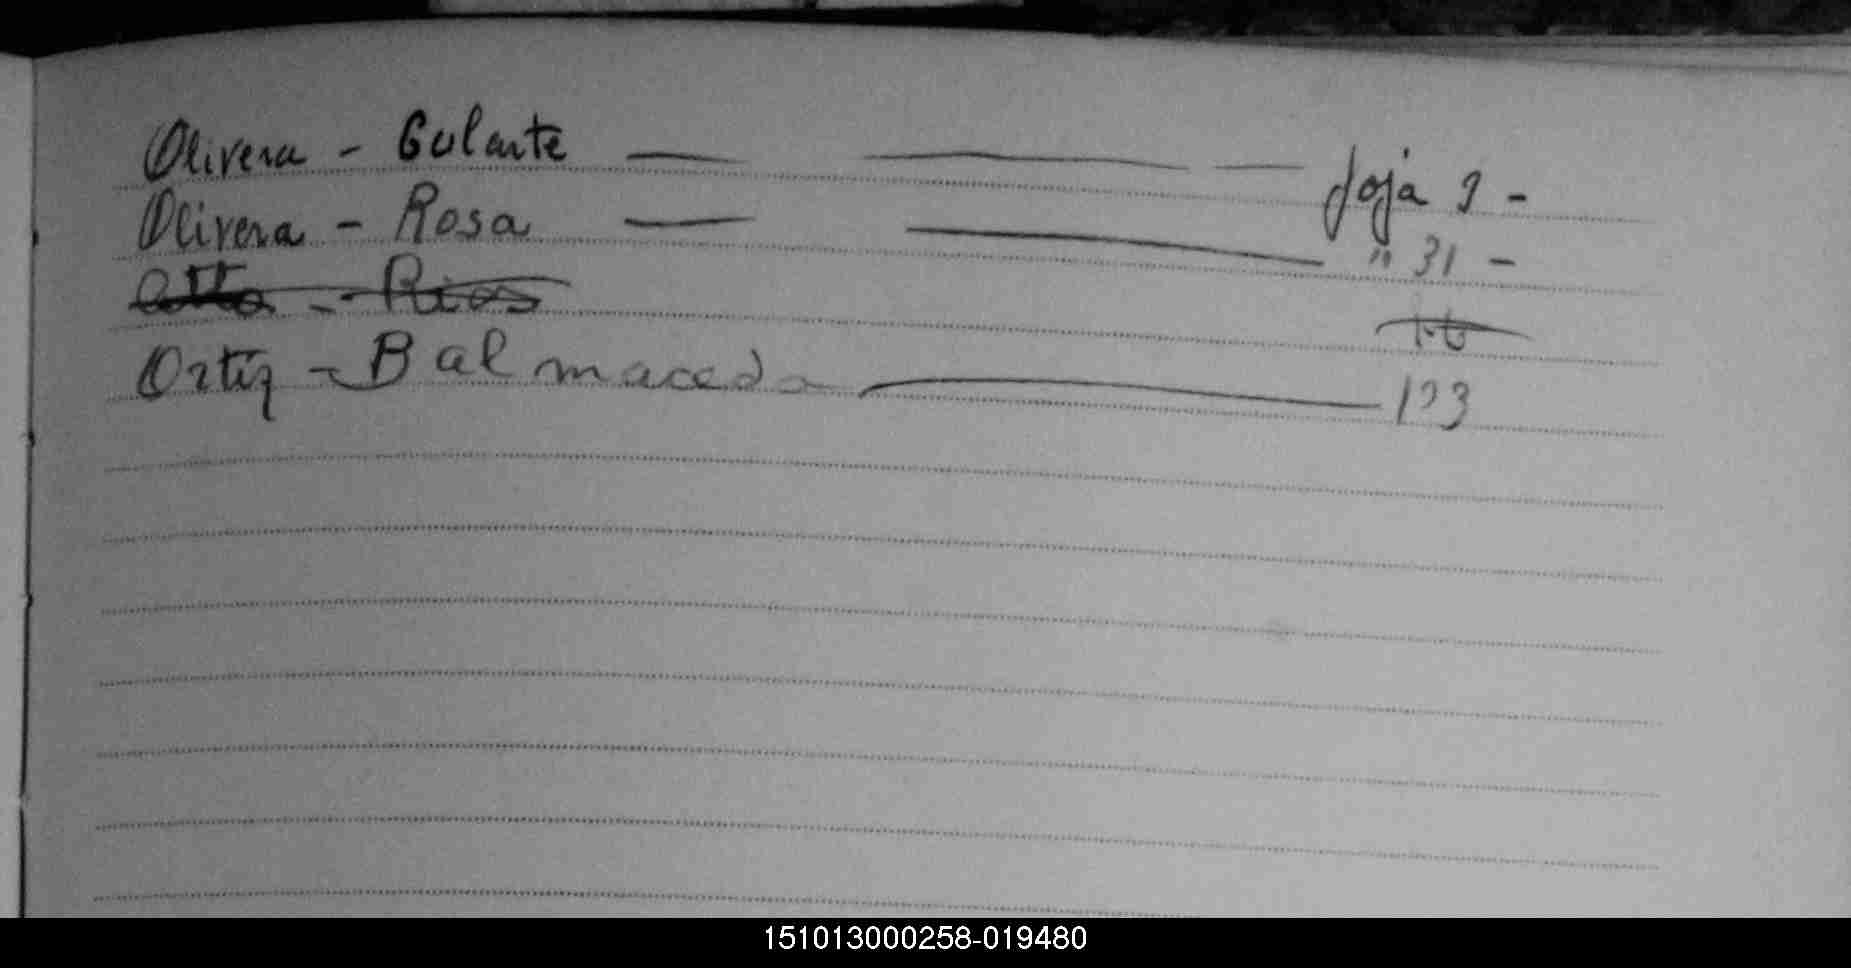 Olivera - Gularte — — — foja 9 -
Olivera - Rosa — — " 31 -
Otto - Rios
Ortiz - Balmaceda — 123
151013000258-019480